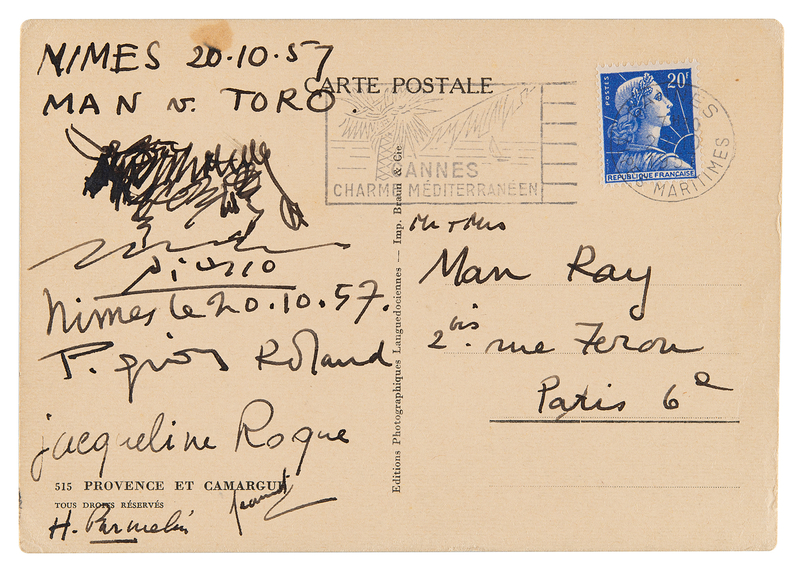 NIMES 20.10.57
MAN v. TORO.
Picasso
Nimes le 20.10.57.
Roland
Jacqueline Roque
515 PROVENCE ET CAMARGUE
TOUS DROITS RÉSERVÉS
H. Parmelin
CARTE POSTALE
CANNES
CHARME MÉDITERRANÉEN
Editions Photographiques Languedociennes — Imp. Braun & Cie
POSTES
20F
REPUBLIQUE FRANÇAISE
MARITIMES
Mr + Mrs
Man Ray
2 bis rue Ferou
Paris 6e